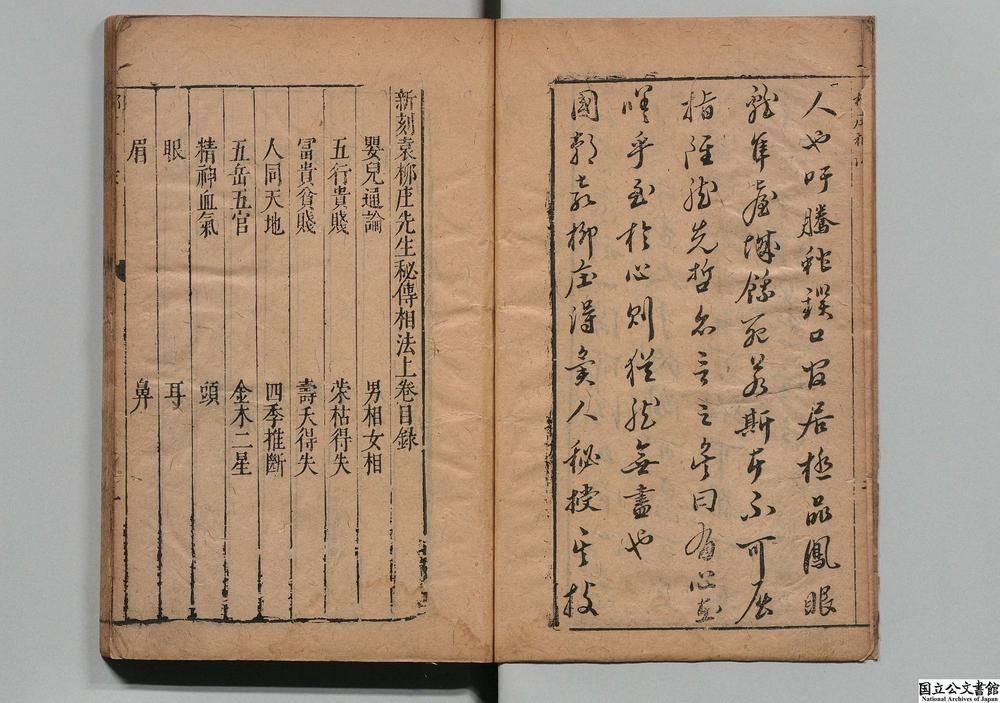 人也吁騰蛇鎖口官居極品鳳眼
龍隼臺城餓死若斯不可屈
指雖然先哲名言之矣曰有心
嗟乎至於心則猶然無盡也
國朝袁柳庄得異人秘授其技
新刻袁柳庄先生秘傳相法上卷目錄
嬰兒通論　男相女相
五行貴賤　榮枯得失
富貴貧賤　壽夭得失
人同天地　四季推斷
五岳五官　金木二星
精神血氣　頭
眼　耳
眉　鼻
国立公文書館
National Archives of Japan